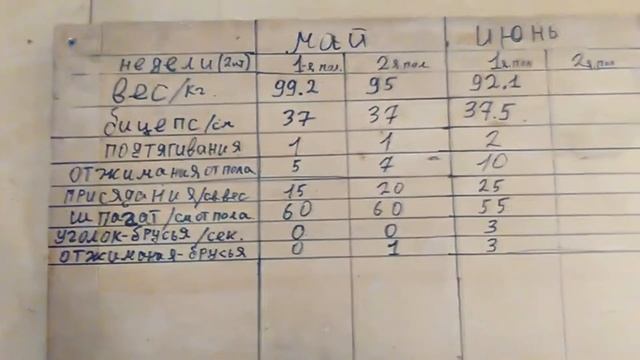 май июнь
недели(2шт) 1я пол. 2я пол 1я пол 2я пол
вес/кг. 99.2 95 92.1
бицепс/см 37 37 37.5
подтягивания 1 1 2
отжимания от пола 5 7 10
присядания/св.вес 15 20 25
шпагат/см от пола 60 60 55
уголок-брусья/сек. 0 0 3
отжимания-брусья 0 1 3